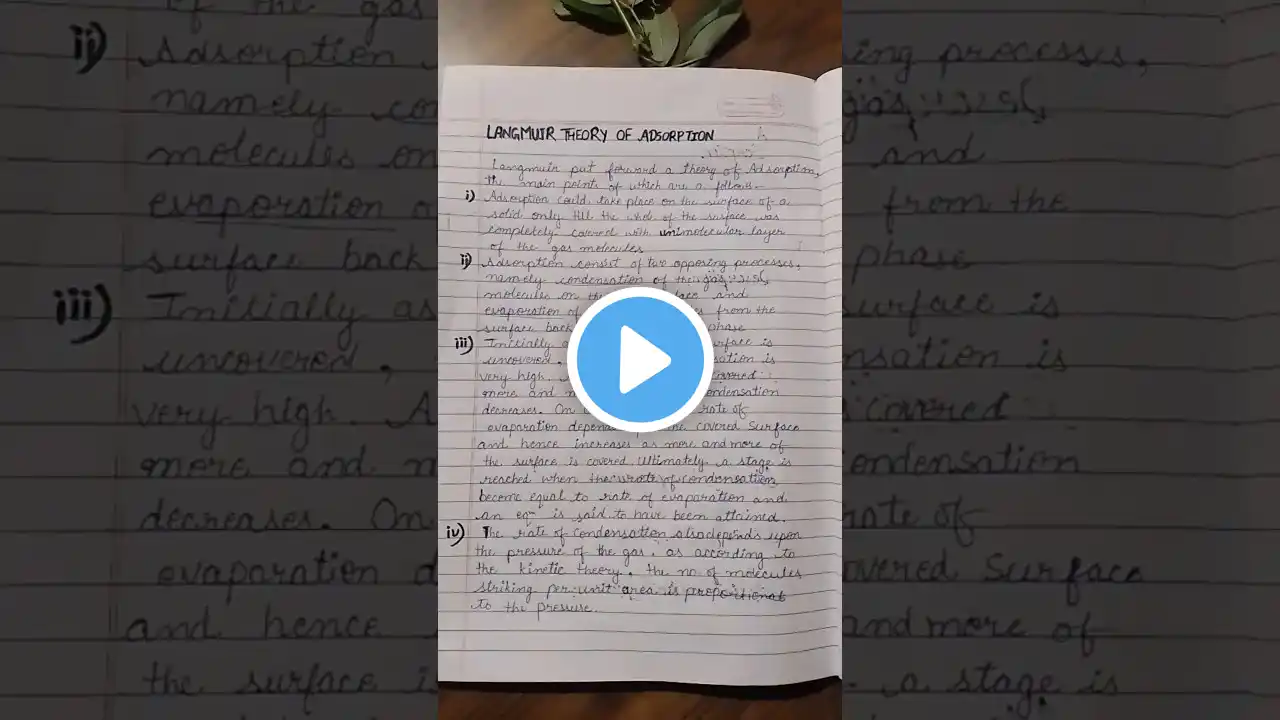 LANGMUIR THEORY OF ADSORPTION
Langmuir put forward a theory of Adsorption,
the main points of which are a follows-
i) Adsorption could take place on the surface of a
solid only till the whol of the surface was
completely covered with unimolecular layer
of the gas molecules
ii) Adsorption consist of two opposing processes,
namely condensation of the gas
molecules on the face and
evaporation of from the
surface back phase
iii) Initially as surface is
uncovered, is
very high. covered
more and condensation
decreases. On rate of
evaporation depends the covered Surface
and hence increases as more and more of
the surface is covered. Ultimately a stage is
reached when the rate of condensation
become equal to rate of evaporation and
an eqn is said to have been attained.
iv) The rate of condensation also depends upon
the pressure of the gas, as according to
the kinetic theory, the no of molecules
striking per unit area is proportional
to the pressure.